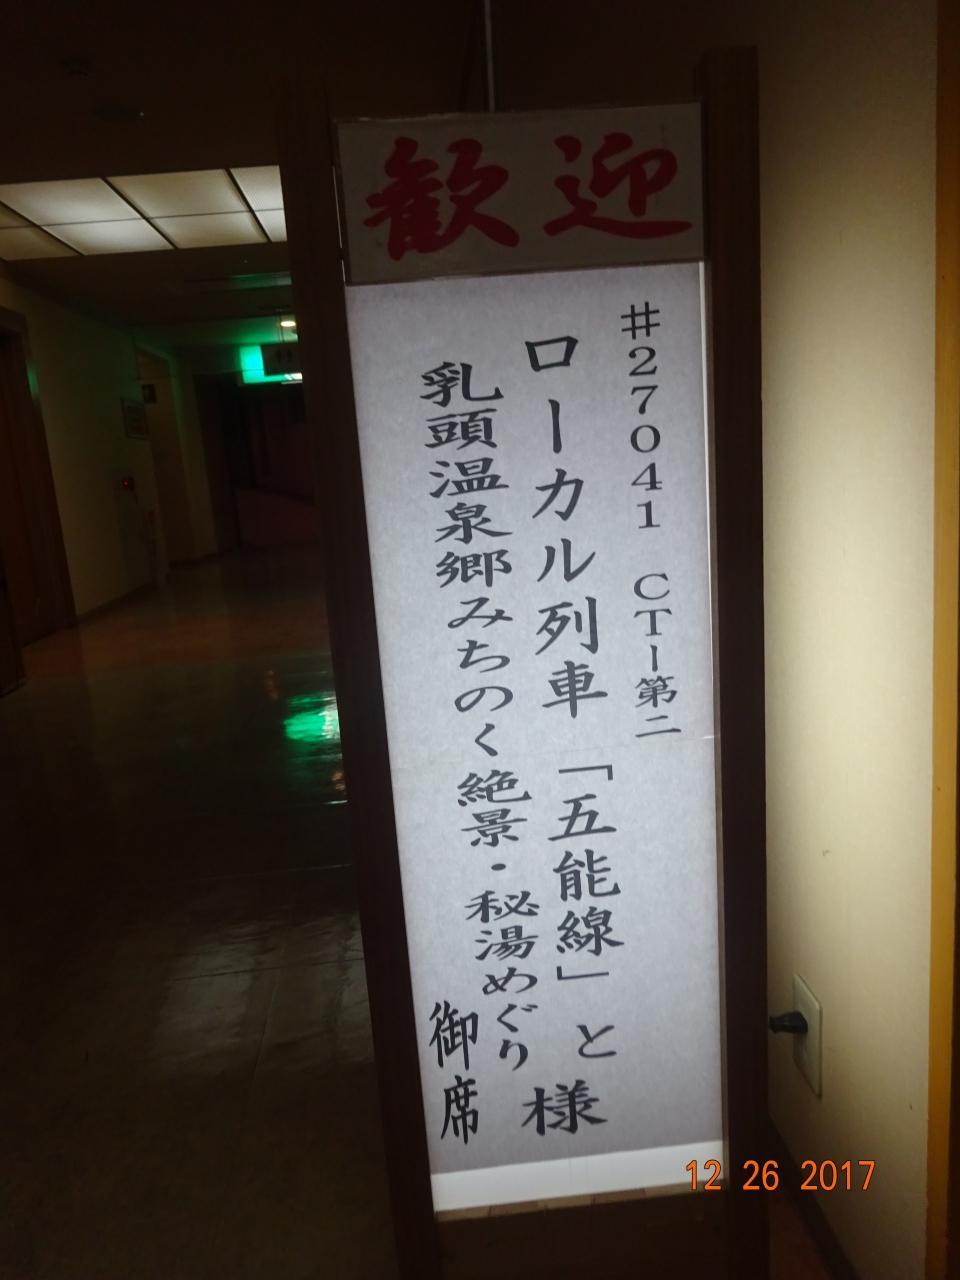 歓迎
#27041 CTー第二
ローカル列車「五能線」と
乳頭温泉郷みちのく絶景・秘湯めぐり
様
御席
12 26 2017